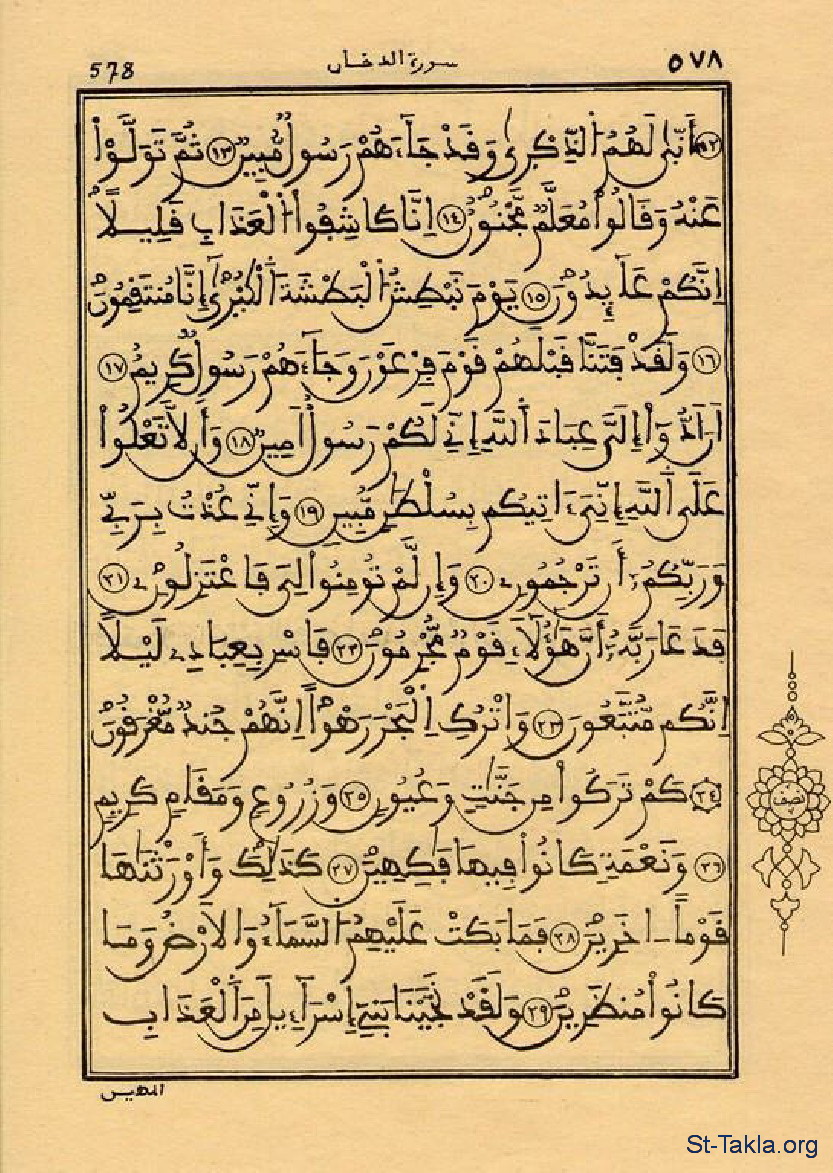 ٥٧٨ سورة الدخان 578
(١٢) أَنّٜىٰ لَهُمُ ٱلذِّكْرٜىٰ وَقَدْ جَآءَهُمْ رَسُولٌ مُّبِينٌ (١٣) ثُمَّ تَوَلَّوْاْ
عَنْهُ وَقَالُواْ مُعَلَّمٌ مَّجْنُونٌ (١٤) اِنَّا كَاشِفُواْ ٱلْعَذَابِ قَلِيلاً
اِنَّكُمْ عَآئِدُونَ (١٥) يَوْمَ نَبْطِشُ ٱلْبَطْشَةَ ٱلْكُبْرٜىٰٓ إِنَّا مُنتَقِمُونَ
(١٦) وَلَقَدْ فَتَنَّا قَبْلَهُمْ قَوْمَ فِرْعَوْنَ وَجَآءَهُمْ رَسُولٌ كَرِيمٌ (١٧)
اَنَ اَدُّوٓاْ إِلَيَّ عِبَادَ ٱللَّهِ إِنِّے لَكُمْ رَسُولٌ اَمِينٌ (١٨) وَأَن لاَّ تَعْلُواْ
عَلَى ٱللَّهِ إِنِّيَ ءَاتِيكُم بِسُلْطَٰنٍ مُّبِينٍ (١٩) وَإِنِّے عُذْتُ بِرَبِّے
وَرَبِّكُمُۥٓ أَن تَرْجُمُونِۦ (٢٠) وَإِن لَّمْ تُومِنُواْ لِيَ فَاعْتَزِلُونِۦ (٢١)
فَدَعَا رَبَّهُۥٓ أَنَّ هَٰٓؤُلَآءِ قَوْمٌ مُّجْرِمُونَ (٢٢) فَاسْرِ بِعِبَادِے لَيْلاً
اِنَّكُم مُّتَّبَعُونَ (٢٣) وَاتْرُكِ اِ۬لْبَحْرَ رَهْواً اِنَّهُمْ جُندٌ مُّغْرَقُونَ
(٢٤) كَمْ تَرَكُواْ مِن جَنَّٰتٍ وَعُيُونٍ (٢٥) وَزُرُوعٍ وَمَقَامٍ كَرِيمٍ
(٢٦) وَنَعْمَةٍ كَانُواْ فِيهَا فَٰكِهِينَ (٢٧) كَذَٰلِكَ وَأَوْرَثْنَٰهَا
قَوْماً ـ اخَرِينَ (٢٨) فَمَا بَكَتْ عَلَيْهِمُ ٱلسَّمَآءُ وَالاَرْضُ وَمَا
كَانُواْ مُنظَرِينَ (٢٩) وَلَقَدْ نَجَّيْنَا بَنِےٓ إِسْرَآءِيلَ مِنَ ٱلْعَذَابِ
المهين
نصف
St-Takla.org